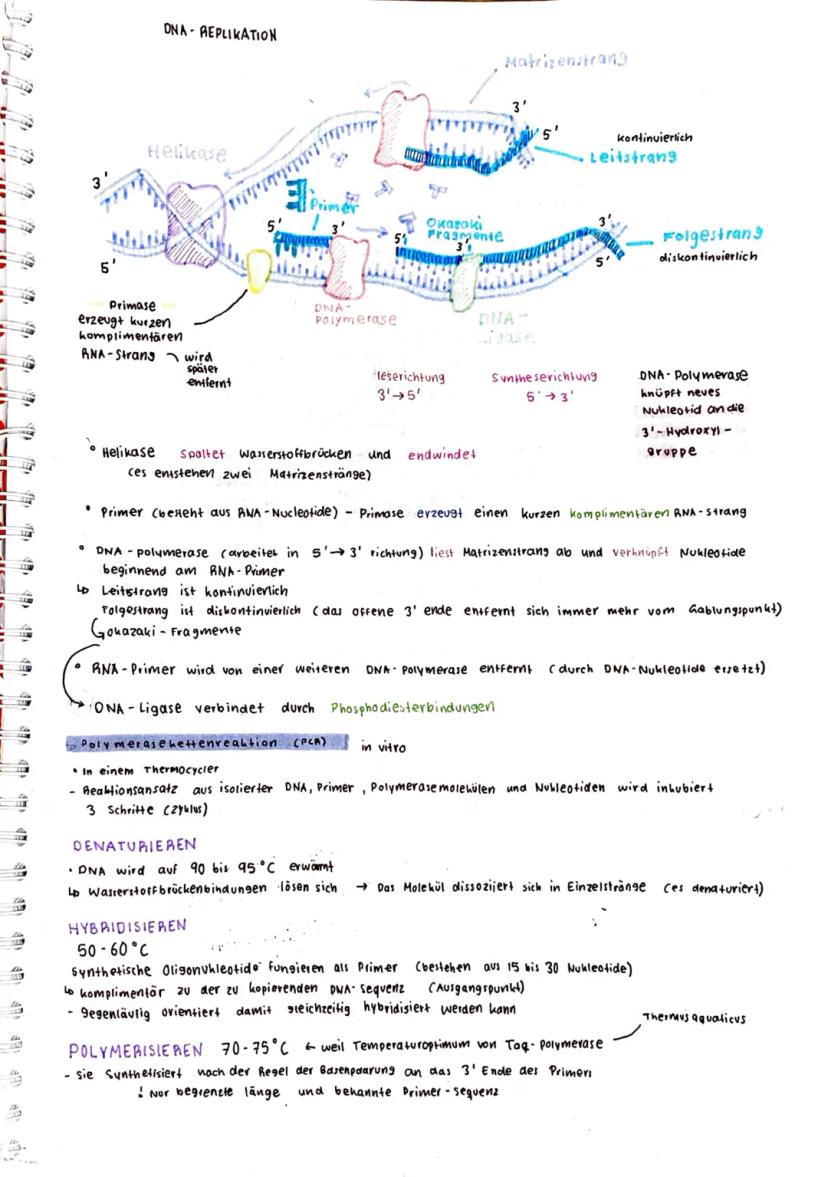 DNA - REPLIKATION
Matrizenstrang
3'
5'
kontinuierlich
Leitstrang
Helikase
3'
Primer
5'
3'
5'
Okazaki
Fragmente
3'
3'
Folgestrang
5'
diskontinuierlich
5'
Primase
erzeugt kurzen
komplimentären
RNA-Strang
wird
später
entfernt
DNA-
Polymerase
DNA-
Ligase
leserichtung
3'→5'
Syntheserichtung
5'→3'
DNA-Polymerase
knüpft neues
Nukleotid an die
3'-Hydroxyl-
gruppe
° Helikase spaltet Wasserstoffbrücken und endwindet
(es entstehen zwei Matrizenstränge)
• Primer (besteht aus RNA-Nucleotide) - Primase erzeugt einen kurzen komplimentären RNA-Strang
° DNA-polymerase (arbeitet in 5'→3' richtung) liest Matrizenstrang ab und verknüpft Nukleotide
beginnend am RNA-Primer
↳ Leitstrang ist kontinuierlich
Folgestrang ist diskontinuierlich (das offene 3' ende entfernt sich immer mehr vom Gablungspunkt)
↳ okazaki - Fragmente
• RNA-Primer wird von einer weiteren DNA-Polymerase entfernt (durch DNA-Nukleotide ersetzt)
DNA-Ligase verbindet durch Phosphodiesterbindungen
Polymerasekettenreaktion (PCR) in vitro
• In einem Thermocycler
- Reaktionsansatz aus isolierter DNA, Primer, Polymerasemolekülen und Nukleotiden wird inkubiert
3 Schritte (Zyklus)
DENATURIEREN
• DNA wird auf 90 bis 95°C erwärmt
↳ Wasserstoffbrückenbindungen lösen sich → Das Molekül dissoziiert sich in Einzelstränge (es denaturiert)
HYBRIDISIEREN
50-60°C
Synthetische Oligonukleotide fungieren als Primer (bestehen aus 15 bis 30 Nukleotide)
↳ komplimentär zu der zu kopierenden DNA-Sequenz (Ausgangspunkt)
- gegenläufig orientiert damit gleichzeitig hybridisiert werden kann
Thermus aquaticus
POLYMERISIEREN 70-75°C ← weil Temperaturoptimum von Taq-Polymerase
- sie Synthetisiert nach der Regel der Basenpaarung an das 3' Ende des Primers
! Nur begrenzte länge und bekannte Primer-Sequenz